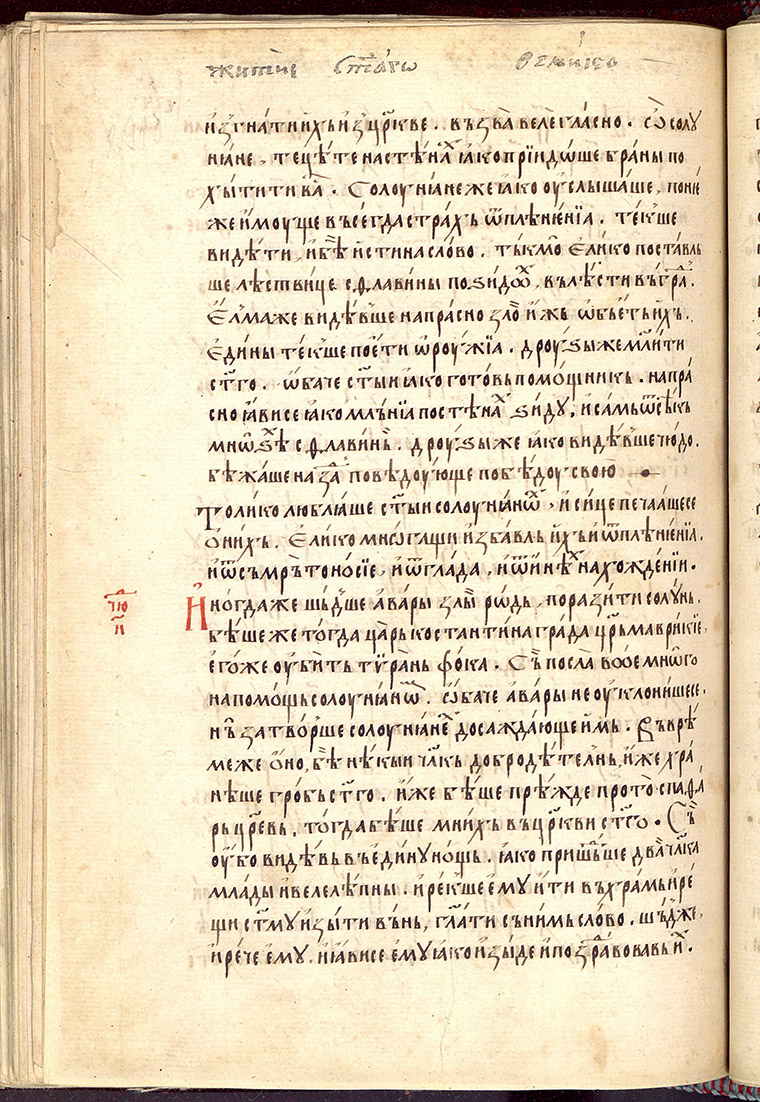 житїе ст҃аго велико
и҆згнати и҆хь и҆з црⷦ҇кве. въꙁва велегласно. ѽ солꙋ
нꙗне, тецѣте на стѣнаⷯ ꙗко прїидѡше браны по
хытити ваⷭ. Солоунꙗне же ꙗко оуслышаше, понⷤе
же и҆моуще въсегда страхь ѿ плѣнѥнїа. текꙋше
видѣти, и҆ бѣ и҆стина слово. тькмо Елико поставль
ше лѣствице склавины по зидоⷯ, вьлѣсти вь граⷣ.
Елма же видѣвше напрасно зло и҆жь ѡбьѣть ихь.
Едины текꙋше поети ѡроужїа. дроузы же млⷭ҇ити
ст҃го. ѡбаче ст҃ыи ꙗко готовь помощникь. напра
сно ꙗви се ꙗко млънїа по стѣнаⷯ зидꙋ, и҆ самь ѿсѣкь
мнѡзѣⷯ склавинь. дроузы же ꙗко видѣвше чюдо.
бѣжаше на заⷣ повѣдоующе побѣдоу свою
Толико люблꙗше ст҃ыи солоунꙗноⷨ, и҆ сице печалꙗше се
о нихь. Елико многащи и҆збавль ихь и҆ ѿ плѣнѥнїа.
и҆ ѿ съмрьтоносїе, и҆ ѿ глада, и҆ ѿ и҆нѣⷯ нахожденїи.
И҆ногда же шьⷣше авары злы рѡдь, поразити солꙋнь.
бѣше же тогда царь костантина града црⷭ҇ь маврикїе,
егоже оубить тѵрань фока. Съ посла вое много
на помощь солоунꙗноⷨ. ѡбаче авары не оуклонише се.
нь затворⷲе солоунꙗнеⷯ досаждающе имь. Въ врѣ
ме же оно, бѣ нѣкыи члⷦ҇кь добродѣтелнь, иже хра
нѣше гробь ст҃го. иже бѣше прѣжде протоспаѳа
рь црⷭ҇евь, тогда бѣше мнихь вь црⷦ҇кви ст҃го. Съ
оубо видѣвь вь единꙋ нощь. ꙗко пришⷣьше два чл҃ка
млады и҆ велелѣпны. и҆ рекⷲе емꙋ ити вь храмь и҆ ре
щи ст҃мꙋ и҆зыти вьнь, гл҃ати сь нимь слово. шьⷣ же,
и҆ рече емꙋ. и҆ ꙗви се емꙋ ꙗко и҆зыде и҆ поздравовавь иⷯ.